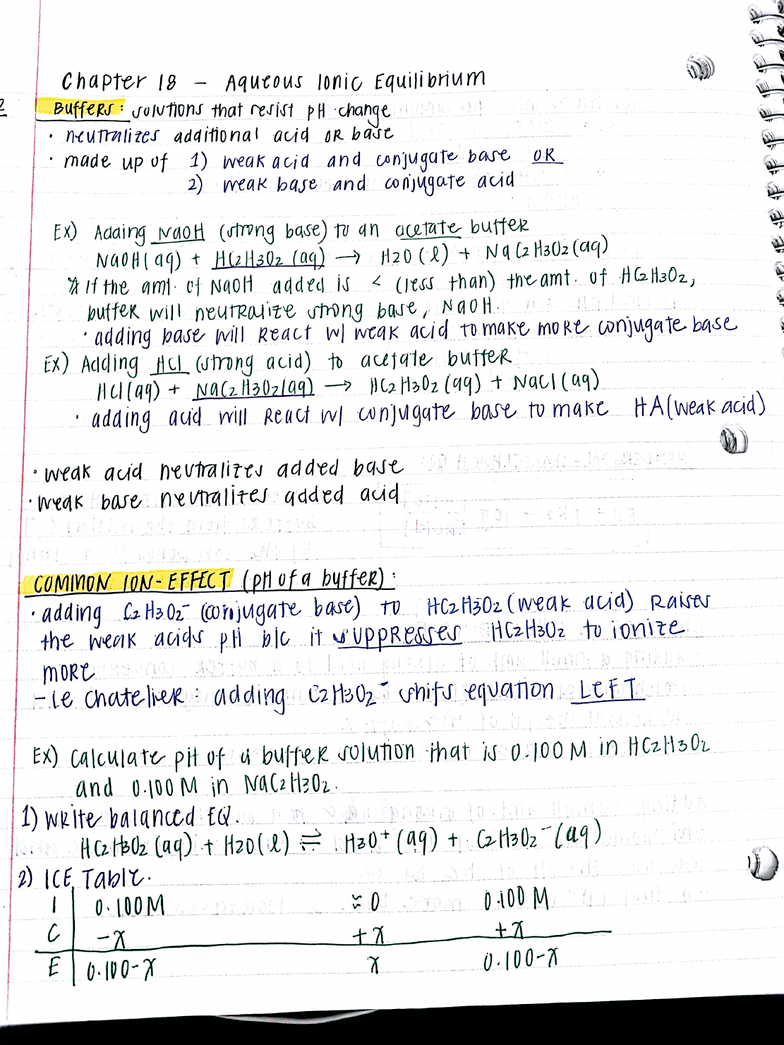 Chapter 18 - Aqueous Ionic Equilibrium
BUFFERS: solutions that resist pH change
• neutralizes additional acid OR base
• made up of 1) weak acid and conjugate base OR
2) weak base and conjugate acid
Ex) Adding NaOH (strong base) to an acetate buffer
NaOH(aq) + HC2H3O2(aq) → H2O(l) + NaC2H3O2(aq)
* if the amt. of NaOH added is < (less than) the amt. of HC2H3O2,
buffer will neutralize strong base, NaOH.
• adding base will react w/ weak acid to make more conjugate base
Ex) Adding HCl (strong acid) to acetate buffer
HCl(aq) + NaC2H3O2(aq) → HC2H3O2(aq) + NaCl(aq)
• adding acid will react w/ conjugate base to make HA(weak acid)
• weak acid neutralizes added base
• weak base neutralizes added acid
COMMON ION-EFFECT (pH of a buffer):
• adding C2H3O2⁻ (conjugate base) to HC2H3O2 (weak acid) raises
the weak acids pH b/c it suppresses HC2H3O2 to ionize
more
- le chatelier: adding C2H3O2⁻ shifs equation LEFT
Ex) Calculate pH of a buffer solution that is 0.100 M in HC2H3O2
and 0.100 M in NaC2H3O2.
1) Write balanced EQ.
HC2H3O2(aq) + H2O(l) ⇌ H3O⁺(aq) + C2H3O2⁻(aq)
2) ICE Table.
I 0.100M ≈0 0.100 M
C -x +x +x
E 0.100-x x 0.100-x